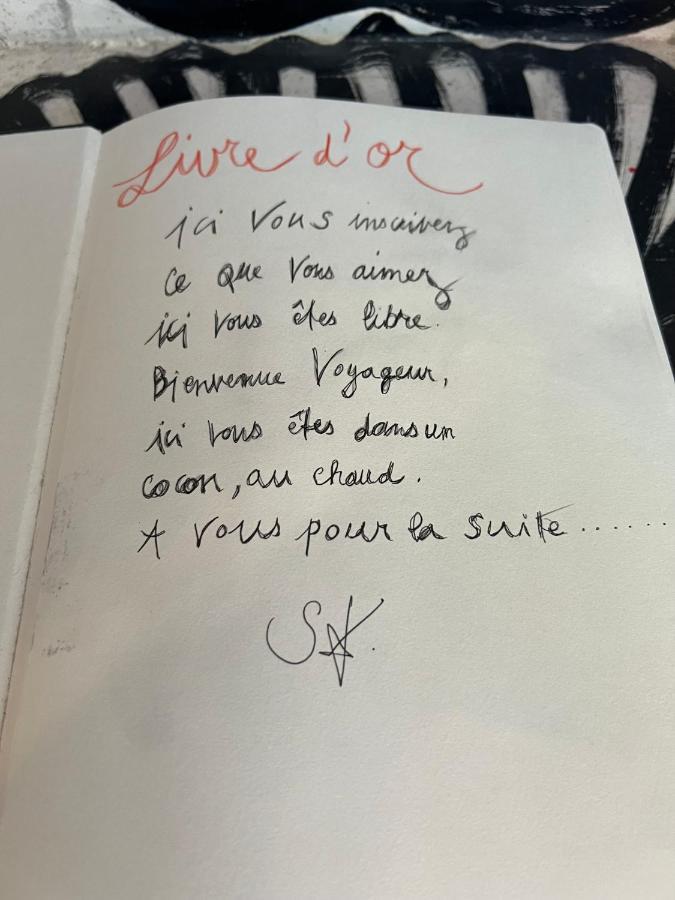 Livre d'or
ici vous inscrivez
ce que vous aimez
ici vous êtes libre.
Bienvenue Voyageur,
ici vous êtes dans un
cocon, au chaud.
A vous pour la suite.......